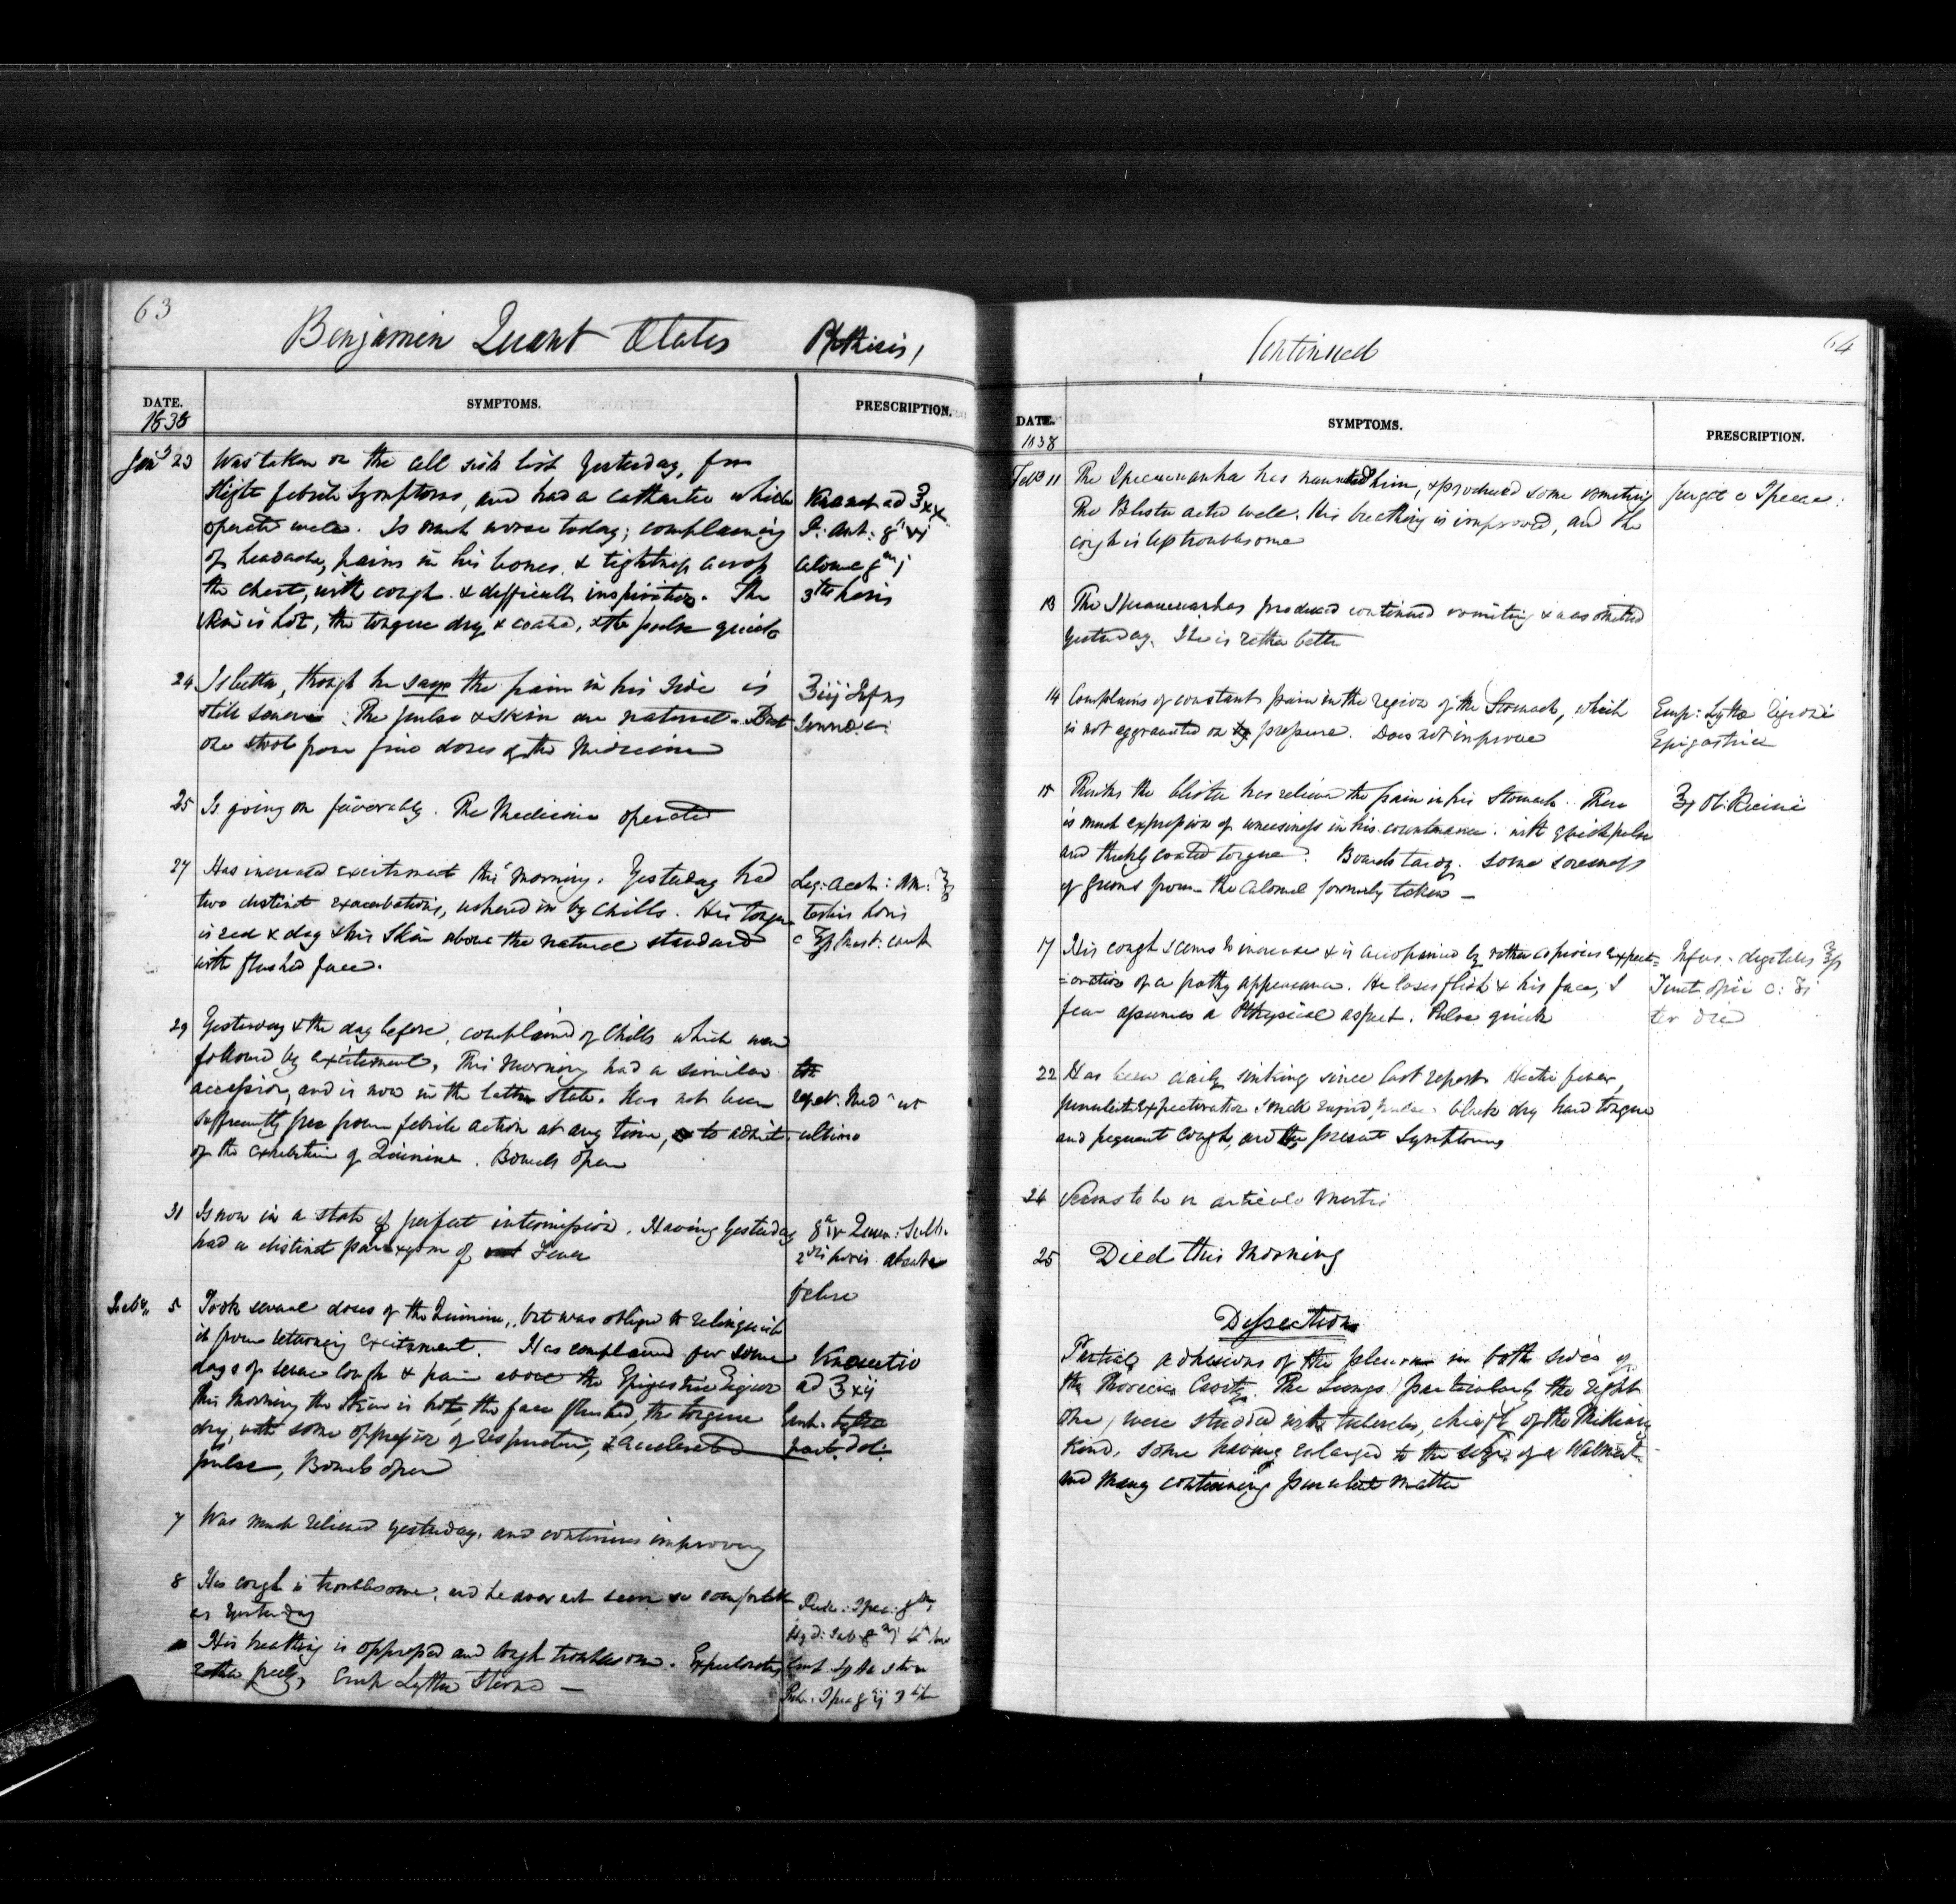 63
Benjamin Quant Phthisis,
DATE. SYMPTOMS. PRESCRIPTION.
1838
23 Was taken on the sick list yesterday, from
slight febrile symptoms, and had a cathartic which
operated well. Is much worse today; complaining
of headache, pains in his bones & tightness across
the chest, with cough & difficult inspiration. The
skin is hot, the tongue dry & coated, & the pulse quick
ad ℥xx
24 Is better, though he says the pain in his side is
still severe. The pulse & skin are natural. But
one stool from five doses of the Medicine
℥iij Infus
25 Is going on favorably. The Medicine operated
27 Has increased excitement this morning. Yesterday had
two distinct exacerbations, ushered in by chills. His tongue
is red & dry & his skin above the natural standard
with flushed face.
29 Yesterday & the day before, complained of Chills which were
followed by excitement. This Morning had a similar
accession, and is now in the latter state. Has not been
sufficiently free from febrile action at any time, to admit
of the exhibition of Quinine. Bowels open
ultimo
31 Is now in a state of perfect intermission. Having yesterday
had a distinct paroxysm of Fever
horis absente
febre
5 Took several doses of the Quinine, but was obliged to relinquish
it from returning excitement. Has complained for some
days of severe cough & pain above the Epigastric Region
This Morning the skin is hot, the face flushed, the tongue
dry, with some oppression of respiration, & accelerated
pulse, Bowels open
ad ℥xij
7 Was much relieved yesterday, and continues improving
8 His cough is troublesome, and he does not seem so comfortable
as yesterday
His breathing is oppressed and cough troublesome. Expectorates
rather freely,
Continued
64
DATE. SYMPTOMS. PRESCRIPTION.
1838
Feb 11 The Ipecacuanha has nauseated him, & produced some vomiting
The Blister acted well. His breathing is improved, and the
cough is less troublesome
13 The Ipecacuanha produced continued vomiting & was omitted
yesterday. He is rather better
14 Complains of constant pain in the region of the Stomach, which
is not aggravated on pressure. Does not improve
Emp: Lyttae Regioni
Epigastricae
15 Thinks the blister has relieved the pain in his Stomach. There
is much expression of uneasiness in his countenance. with quick pulse
and thickly coated tongue. Bowels tardy. Some soreness
of gums from the Calomel formerly taken —
℥j Ol: Ricini
17 His cough seems to increase & is accompanied by rather copious expect=
=oration of a frothy appearance. He loses flesh & his face, I
fear assumes a Phthysical aspect. Pulse quick
Infus. digitalis
Tinct opii
ter die
22 Has been daily sinking since last report. Hectic fever,
purulent Expectoration, small rapid pulse, black dry hard tongue
and frequent cough, are the present Symptoms
24 Seems to be in articulo mortis
25 Died this Morning
Dissection
Partial adhesions of the pleura in both sides of
the Thoracic Cavity. The Lungs (particularly the right
one) were studded with tubercles, chiefly of the Miliary
Kind, some having enlarged to the size of a Walnut
and many containing purulent matter